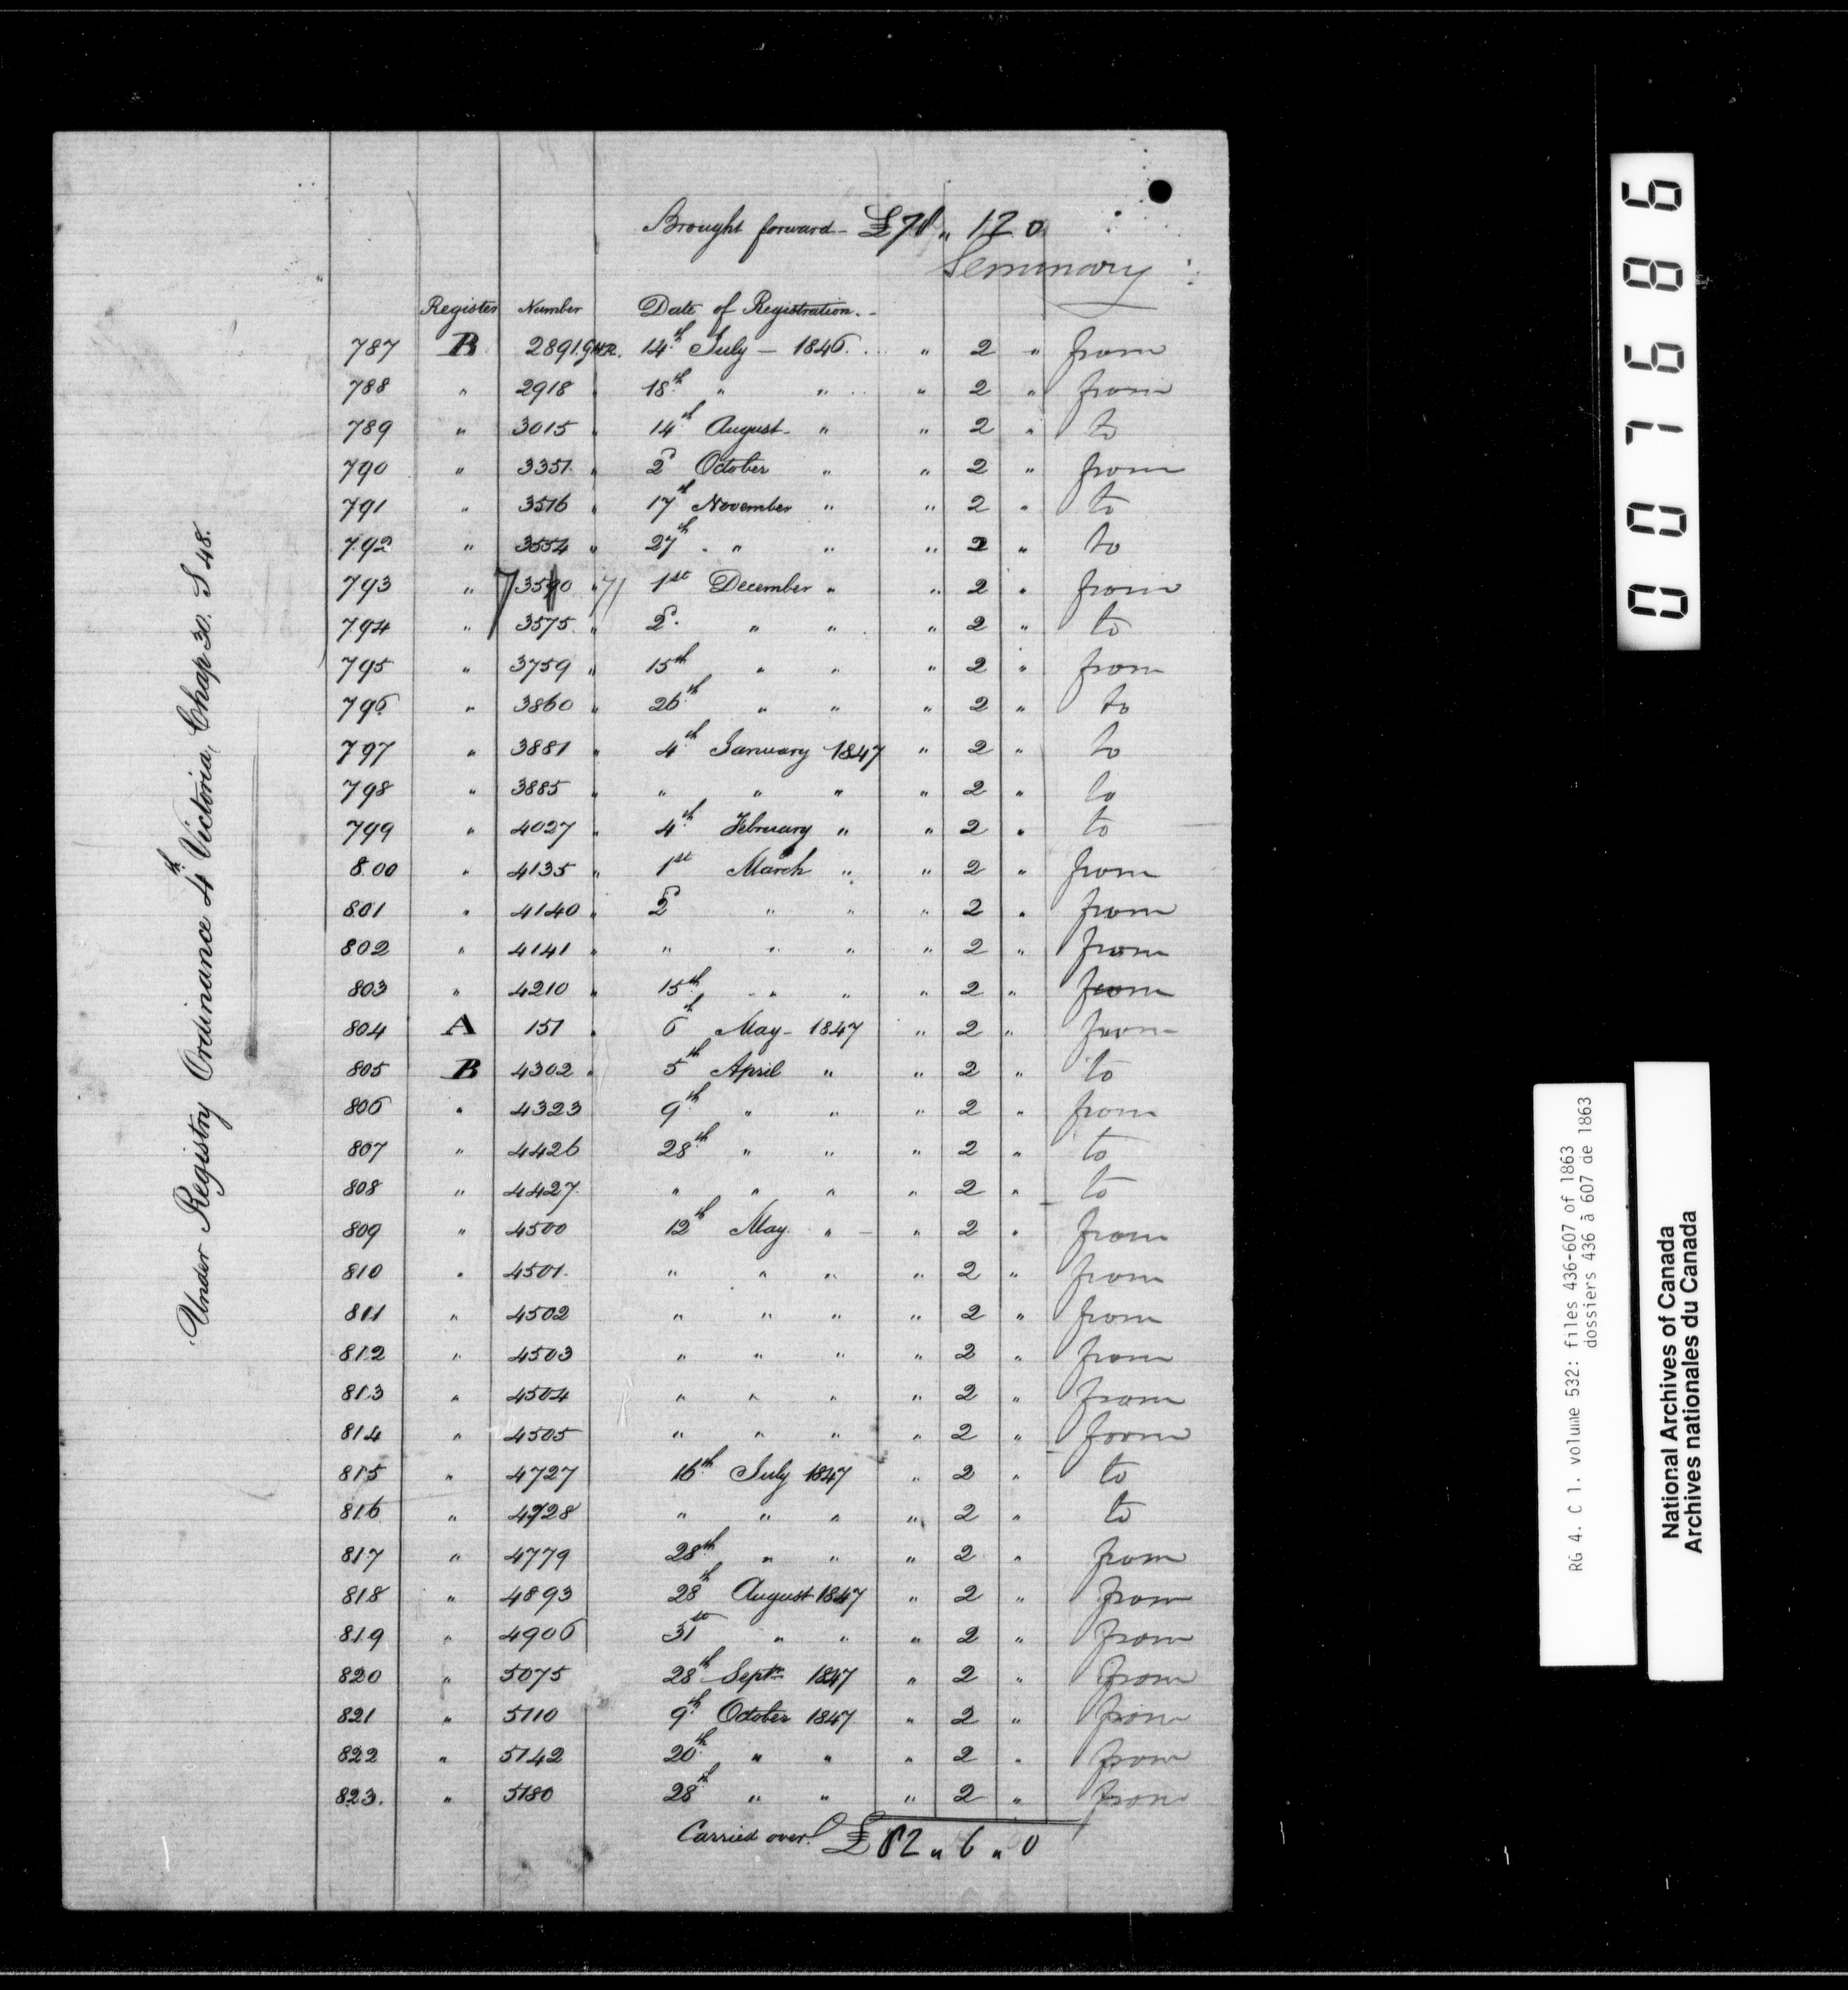 Brought forward - £78 „ 12 0
Seminary
Register Number Date of Registration.
787 B 2891. GHR. 14th July - 1846. .. " 2 " from
788 " 2918 " 18th " " .. " 2 " from
789 " 3015 " 14th August - " " 2 " to
790 " 3351. " 2d October " " 2 " from
791 " 3516 " 17th November " " 2 " to
792 " 3554 " 27th " " " 2 " to
793 " 3590 " 71 1st December " " 2 " from
794 " 3575. " 2d " " " 2 " to
795 " 3759 " 15th " " " 2 " from
796 " 3860 " 26th " " " 2 " to
797 " 3881 " 4th January 1847 " 2 " to
798 " 3885 " " " " " 2 " to
799 " 4027 " 4th February " " 2 " to
800 " 4135 " 1st March " " 2 " from
801 " 4140 " 2d " " " 2 " from
802 " 4141 " " " " " 2 " from
803 " 4210 " 15th " " " 2 " from
804 A 151 " 6th May - 1847 " 2 " from
805 B 4302 " 5th April " " 2 " to
806 " 4323 9th " " " 2 " from
807 " 4426 28th " " " 2 " to
808 " 4427. " " " " 2 " to
809 " 4500 12th May. " - " 2 " from
810 " 4501. " " " " 2 " from
811 " 4502 " " " " 2 " from
812 " 4503 " " " " 2 " from
813 " 4504 " " " " 2 " from
814 " 4505 " " " " 2 " from
815 " 4727 16th July 1847 " 2 " to
816 " 4728 " " " " 2 " to
817 " 4779 28th " " " 2 " from
818 " 4893 28th August 1847 " 2 " from
819 " 4906 31st " " " 2 " from
820 " 5075 28th Septr 1847 " 2 " from
821 " 5110 9th October 1847 " 2 " from
822 " 5142 20th " " " 2 " from
823. " 5180 28th " " " 2 " from
Carried over £82 „ 6 „ 0
Under Registry Ordinance 4th Victoria, Chap 30. S 48.
007686
RG 4. C 1. volume 532: files 436-607 of 1863
dossiers 436 à 607 de 1863
National Archives of Canada
Archives nationales du Canada